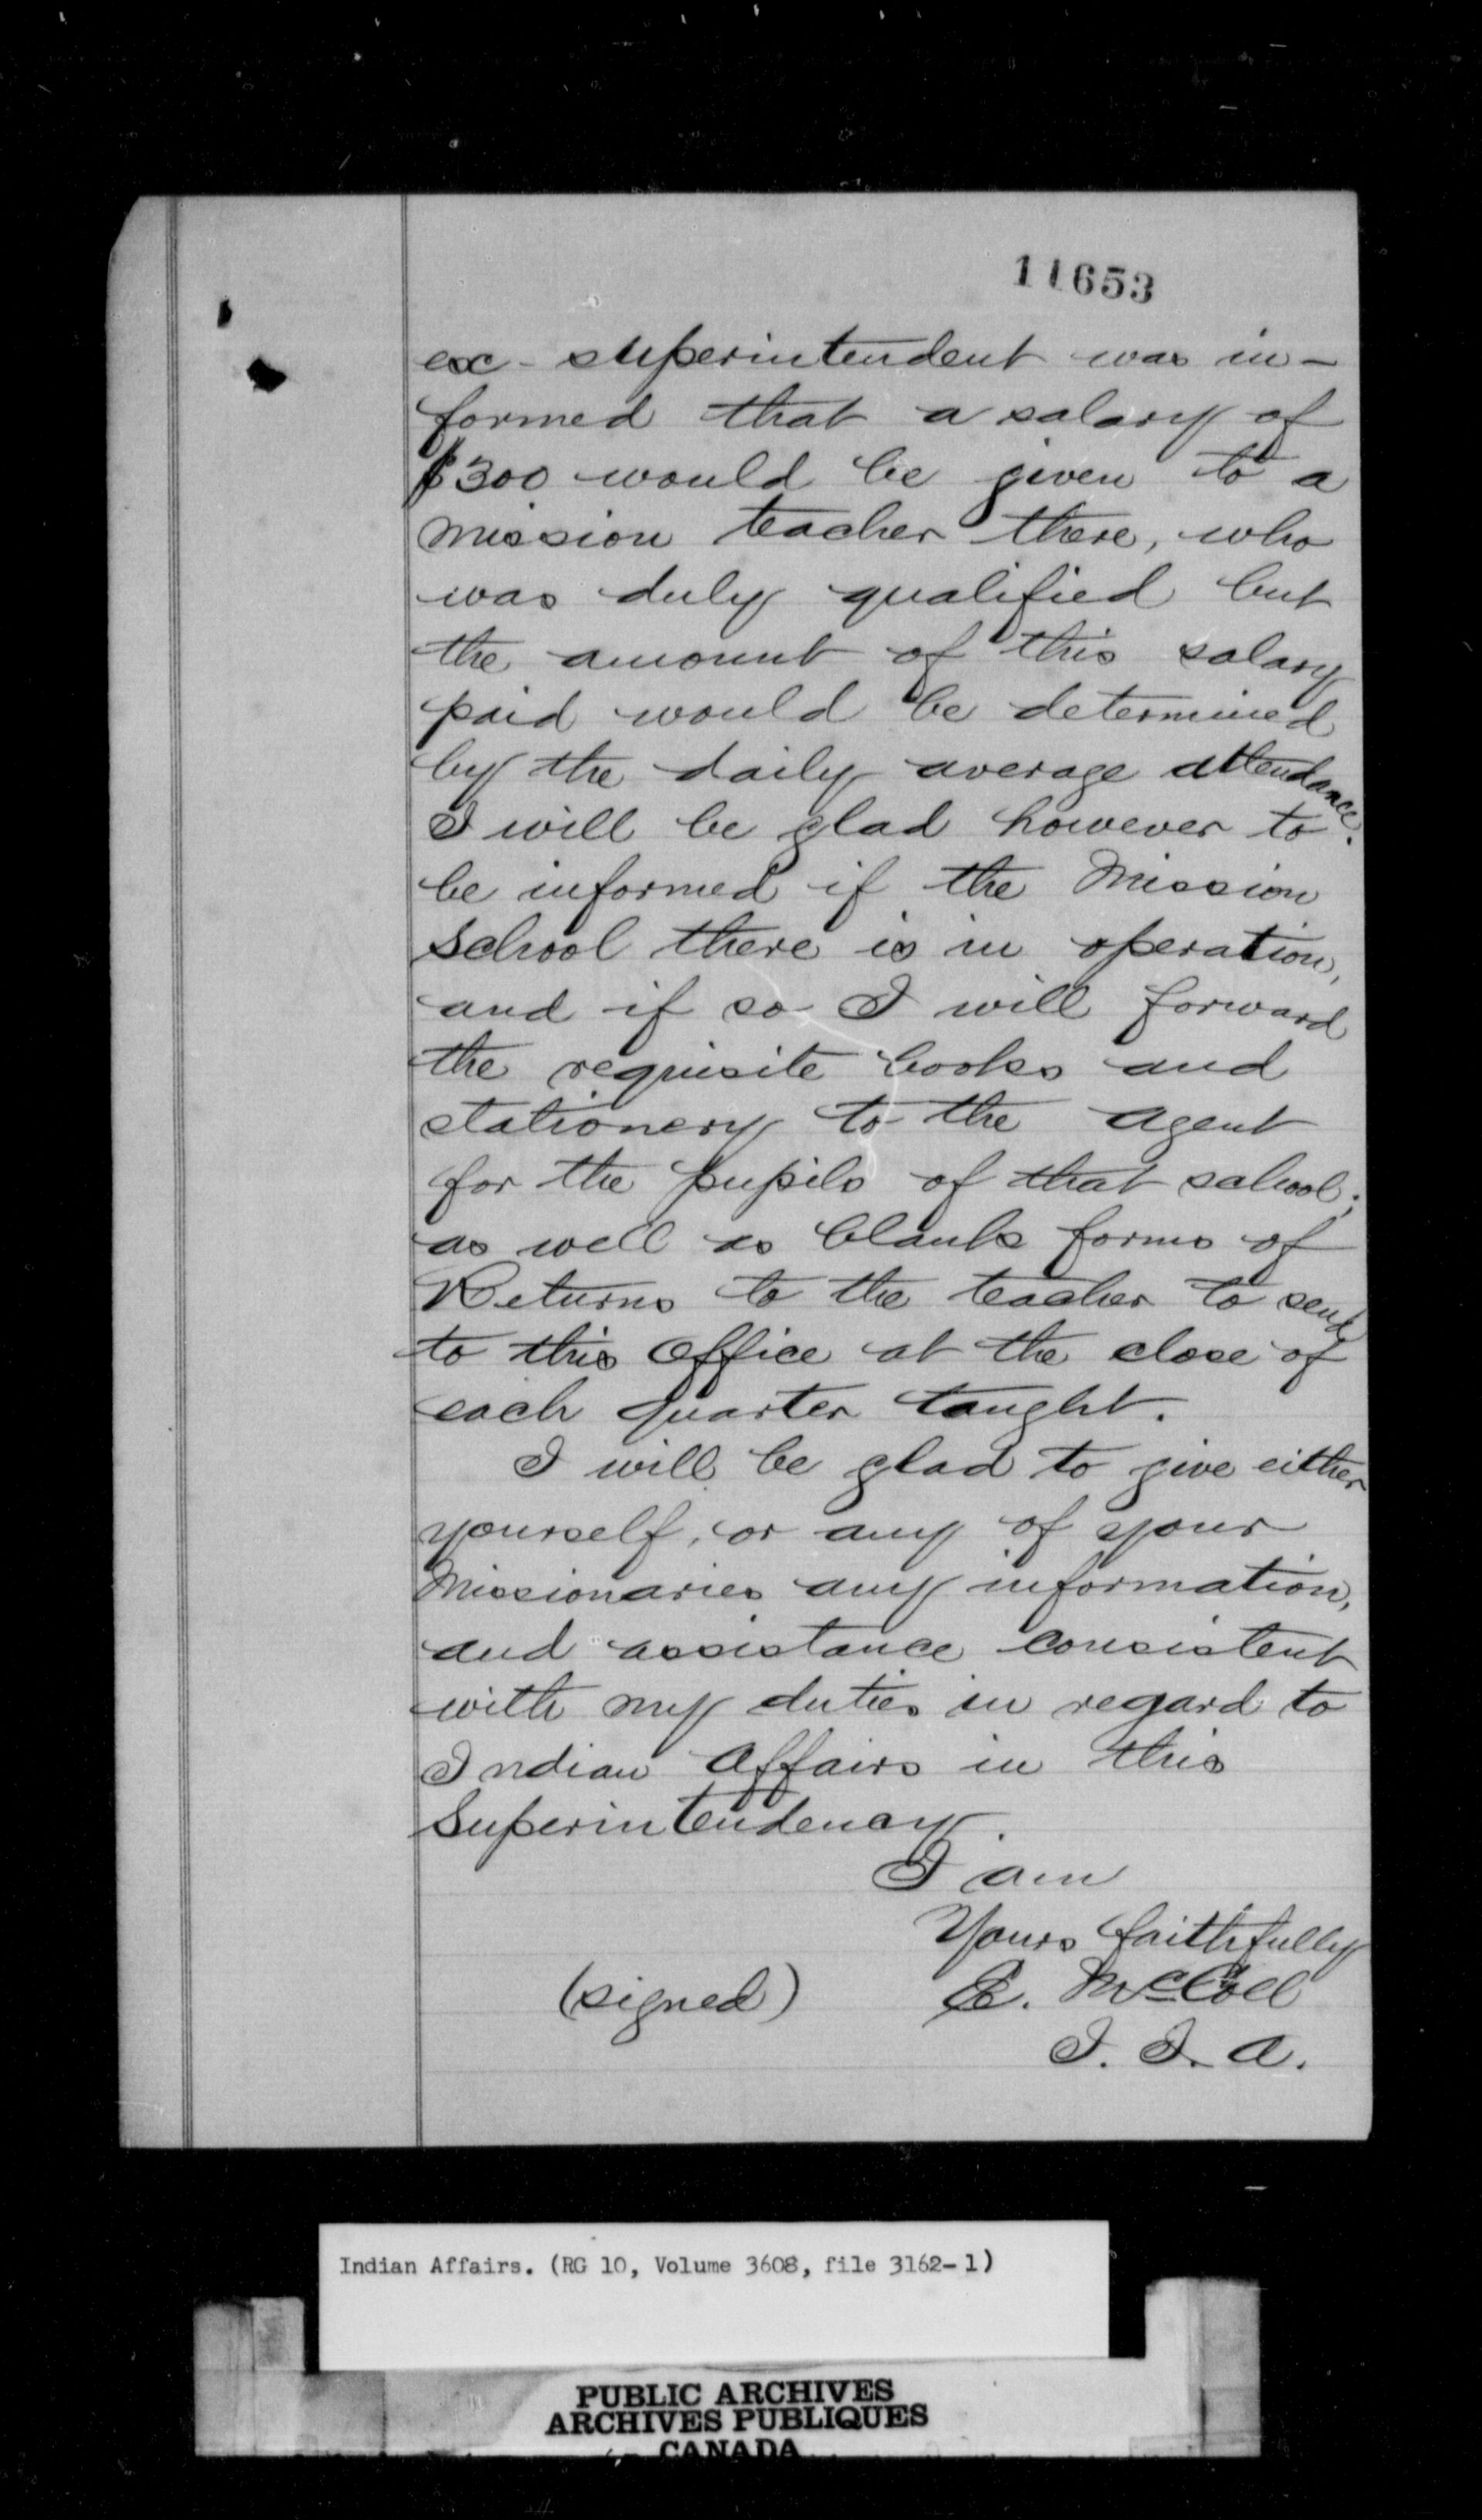 11653
ex-superintendent was in-
formed that a salary of
$300 would be given to a
Mission teacher there, who
was duly qualified but
the amount of this salary
paid would be determined
by the daily average attendance.
I will be glad however to
be informed if the Mission
School there is in operation,
and if so I will forward
the requisite books and
stationery to the Agent
for the pupils of that school;
as well as blank forms of
Returns to the teacher to send
to this Office at the close of
each quarter taught.
I will be glad to give either
yourself, or any of your
Missionaries any information,
and assistance consistent
with my duties in regard to
Indian Affairs in this
Superintendency.
I am
Yours faithfully
(signed) E. McColl
I. I. A.
Indian Affairs. (RG 10, Volume 3608, file 3162-1)
PUBLIC ARCHIVES
ARCHIVES PUBLIQUES
CANADA